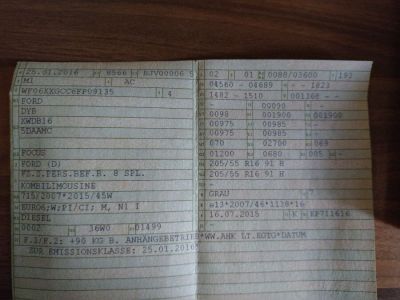 25.01.2016 8566 BJV00006 5
M1 AC
WF06XXGCC6FP09135 4
FORD
DYB
XWDB16
5DAAMC
FOCUS
FORD (D)
FZ.Z.PERS.BEF.B. 8 SPL.
KOMBILIMOUSINE
715/2007*2015/45W
EURO6;W;PI/CI; M, N1 I
DIESEL
0002 36W0 01499
F.1/F.2: +90 KG B. ANHÄNGEBETRIEB*WW.AHK LT.EGTG*DATUM
ZUR EMISSIONSKLASSE: 25.01.2016
02 01 0088/03600 193
04560 - 04689 - - 1823
1482 - 1510 001368 - -
- 00090 - -
0098 001900 001900
00975 00985 -
00975 00985 -
070 02700 069
01200 0680 005 - -
205/55 R16 91 H
205/55 R16 91 H
GRAU
e13*2007/46*1138*16
16.07.2015 K